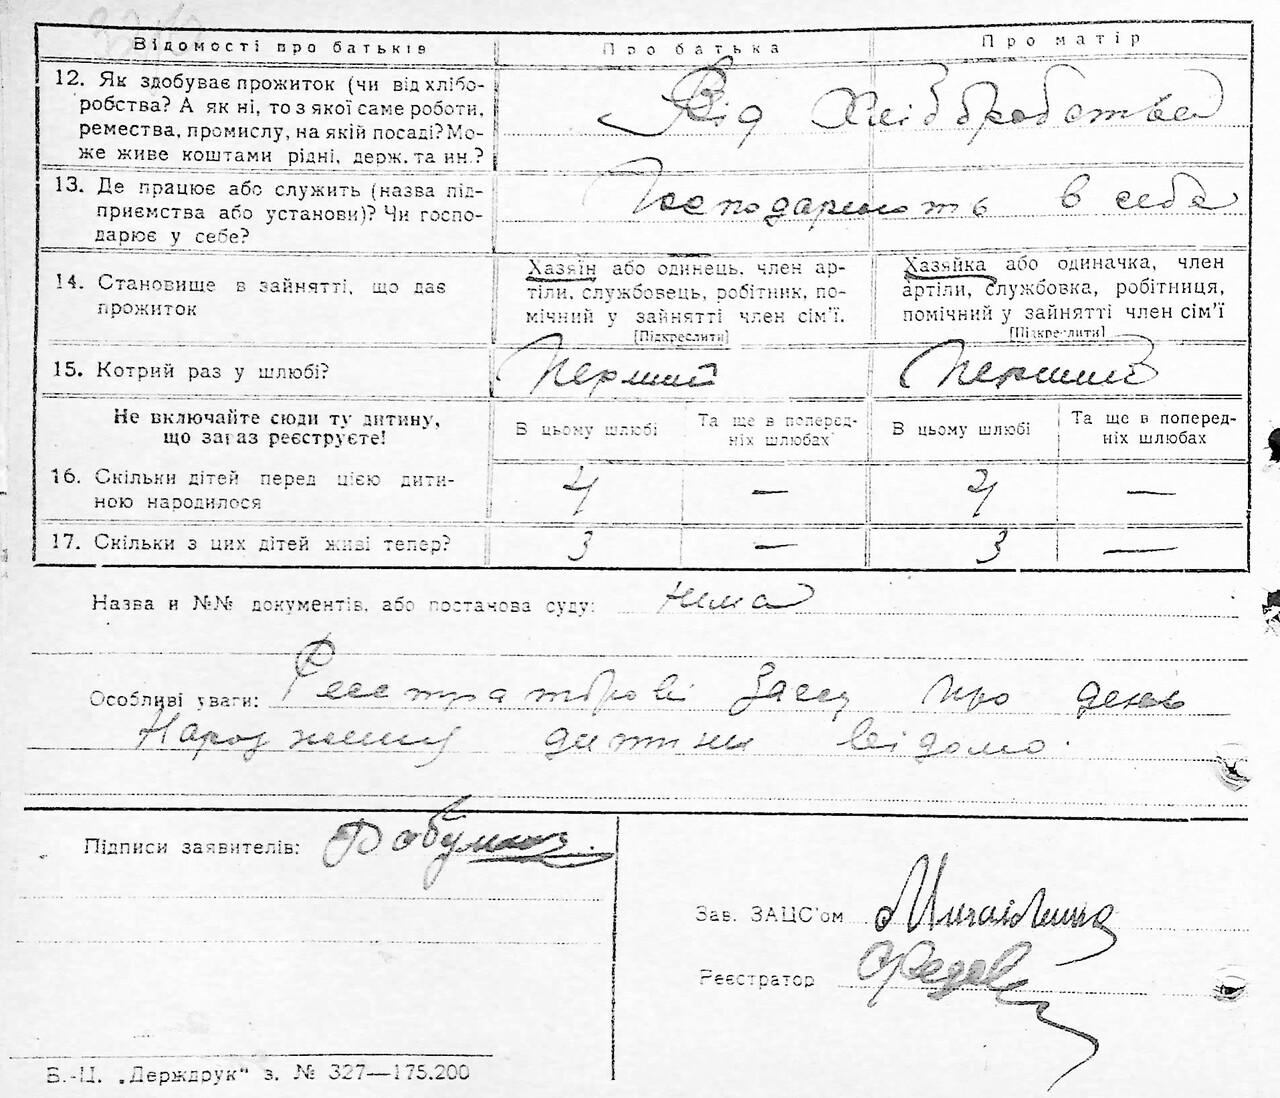 Відомості про батьків Про батька Про матір
12. Як здобуває прожиток (чи від хлібо-
робства? А як ні, то з якої саме роботи,
ремества, промислу, на якій посаді? Мо-
же живе коштами рідні, держ. та ин.?
Від Хлібробства
13. Де працює або служить (назва під-
приємства або установи)? Чи госпо-
дарює у себе?
Господарюють в себе
14. Становище в зайнятті, що дає
прожиток
Хазяїн або одинець, член ар-
тіли, службовець, робітник, по-
мічний у зайнятті член сім'ї.
[Підкреслити]
Хазяйка або одиначка, член
артіли, службовка, робітниця,
помічний у зайнятті член сім'ї
[Підкреслити]
15. Котрий раз у шлюбі? Перший Перший
Не включайте сюди ту дитину,
що зараз реєструєте!
В цьому шлюбі
Та ще в поперед-
ніх шлюбах
В цьому шлюбі
Та ще в поперед-
ніх шлюбах
16. Скільки дітей перед цією дити-
ною народилося
4 — 4 —
17. Скільки з цих дітей живі тепер? 3 — 3 —
Назва и №№ документів, або постанова суду: нима
Особливі уваги: Реєстраторові Загсу про день
Народження дитини відомо.
Підписи заявителів:
Зав. ЗАЦС'ом
Реєстратор
Б.-Ц. „Держдрук" з. № 327—175.200